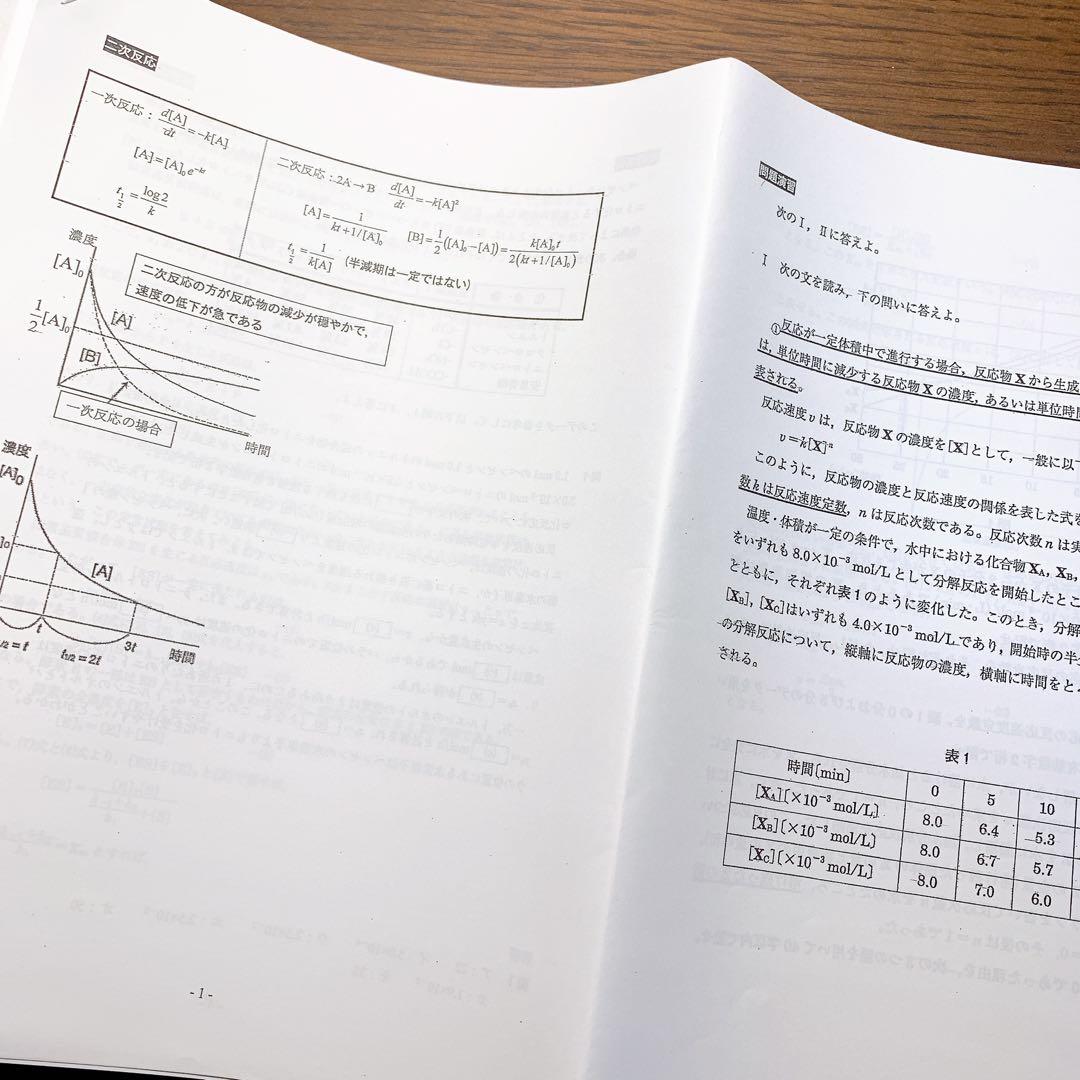 二次反応
一次反応：d[A]/dt=-k[A]
[A]=[A]₀e^{-kt}
t_{1/2}=log2/k
二次反応：2A→B d[A]/dt=-k[A]²
[A]=1/(kt+1/[A]₀) [B]=1/2([A]₀-[A])=k[A]₀t/2(kt+1/[A]₀)
t_{1/2}=1/k[A] (半減期は一定ではない)
濃度
[A]₀
1/2[A]₀
[A]
[B]
二次反応の方が反応物の減少が穏やかで，
速度の低下が急である
一次反応の場合
時間
濃度
[A]₀
[A]
t
3t
時間
t_{1/2}=2t
- 1 -
問題演習
次のⅠ，Ⅱに答えよ。
Ⅰ 次の文を読み，下の問いに答えよ。
①反応が一定体積中で進行する場合，反応物Xから生成
は，単位時間に減少する反応物Xの濃度，あるいは単位時
表される。
反応速度vは，反応物Xの濃度を[X]として，一般に以
v=k[X]ⁿ
このように，反応物の濃度と反応速度の関係を表した式を
数kは反応速度定数，nは反応次数である。反応次数nは
温度・体積が一定の条件で，水中における化合物X_A，X_B，
をいずれも8.0×10⁻³mol/Lとして分解反応を開始したとこ
とともに，それぞれ表1のように変化した。このとき，分解
[X_B]，[X_C]はいずれも4.0×10⁻³mol/Lであり，開始時の半
の分解反応について，縦軸に反応物の濃度，横軸に時間をと
される。
表1
時間[min] 0 5 10
[X_A][×10⁻³mol/L] 8.0 6.4 5.3
[X_B][×10⁻³mol/L] 8.0 6.7 5.7
[X_C][×10⁻³mol/L] 8.0 7.0 6.0